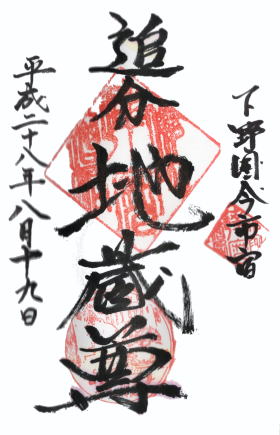 下野国今市宿
追分地蔵尊
平成二十八年八月十九日